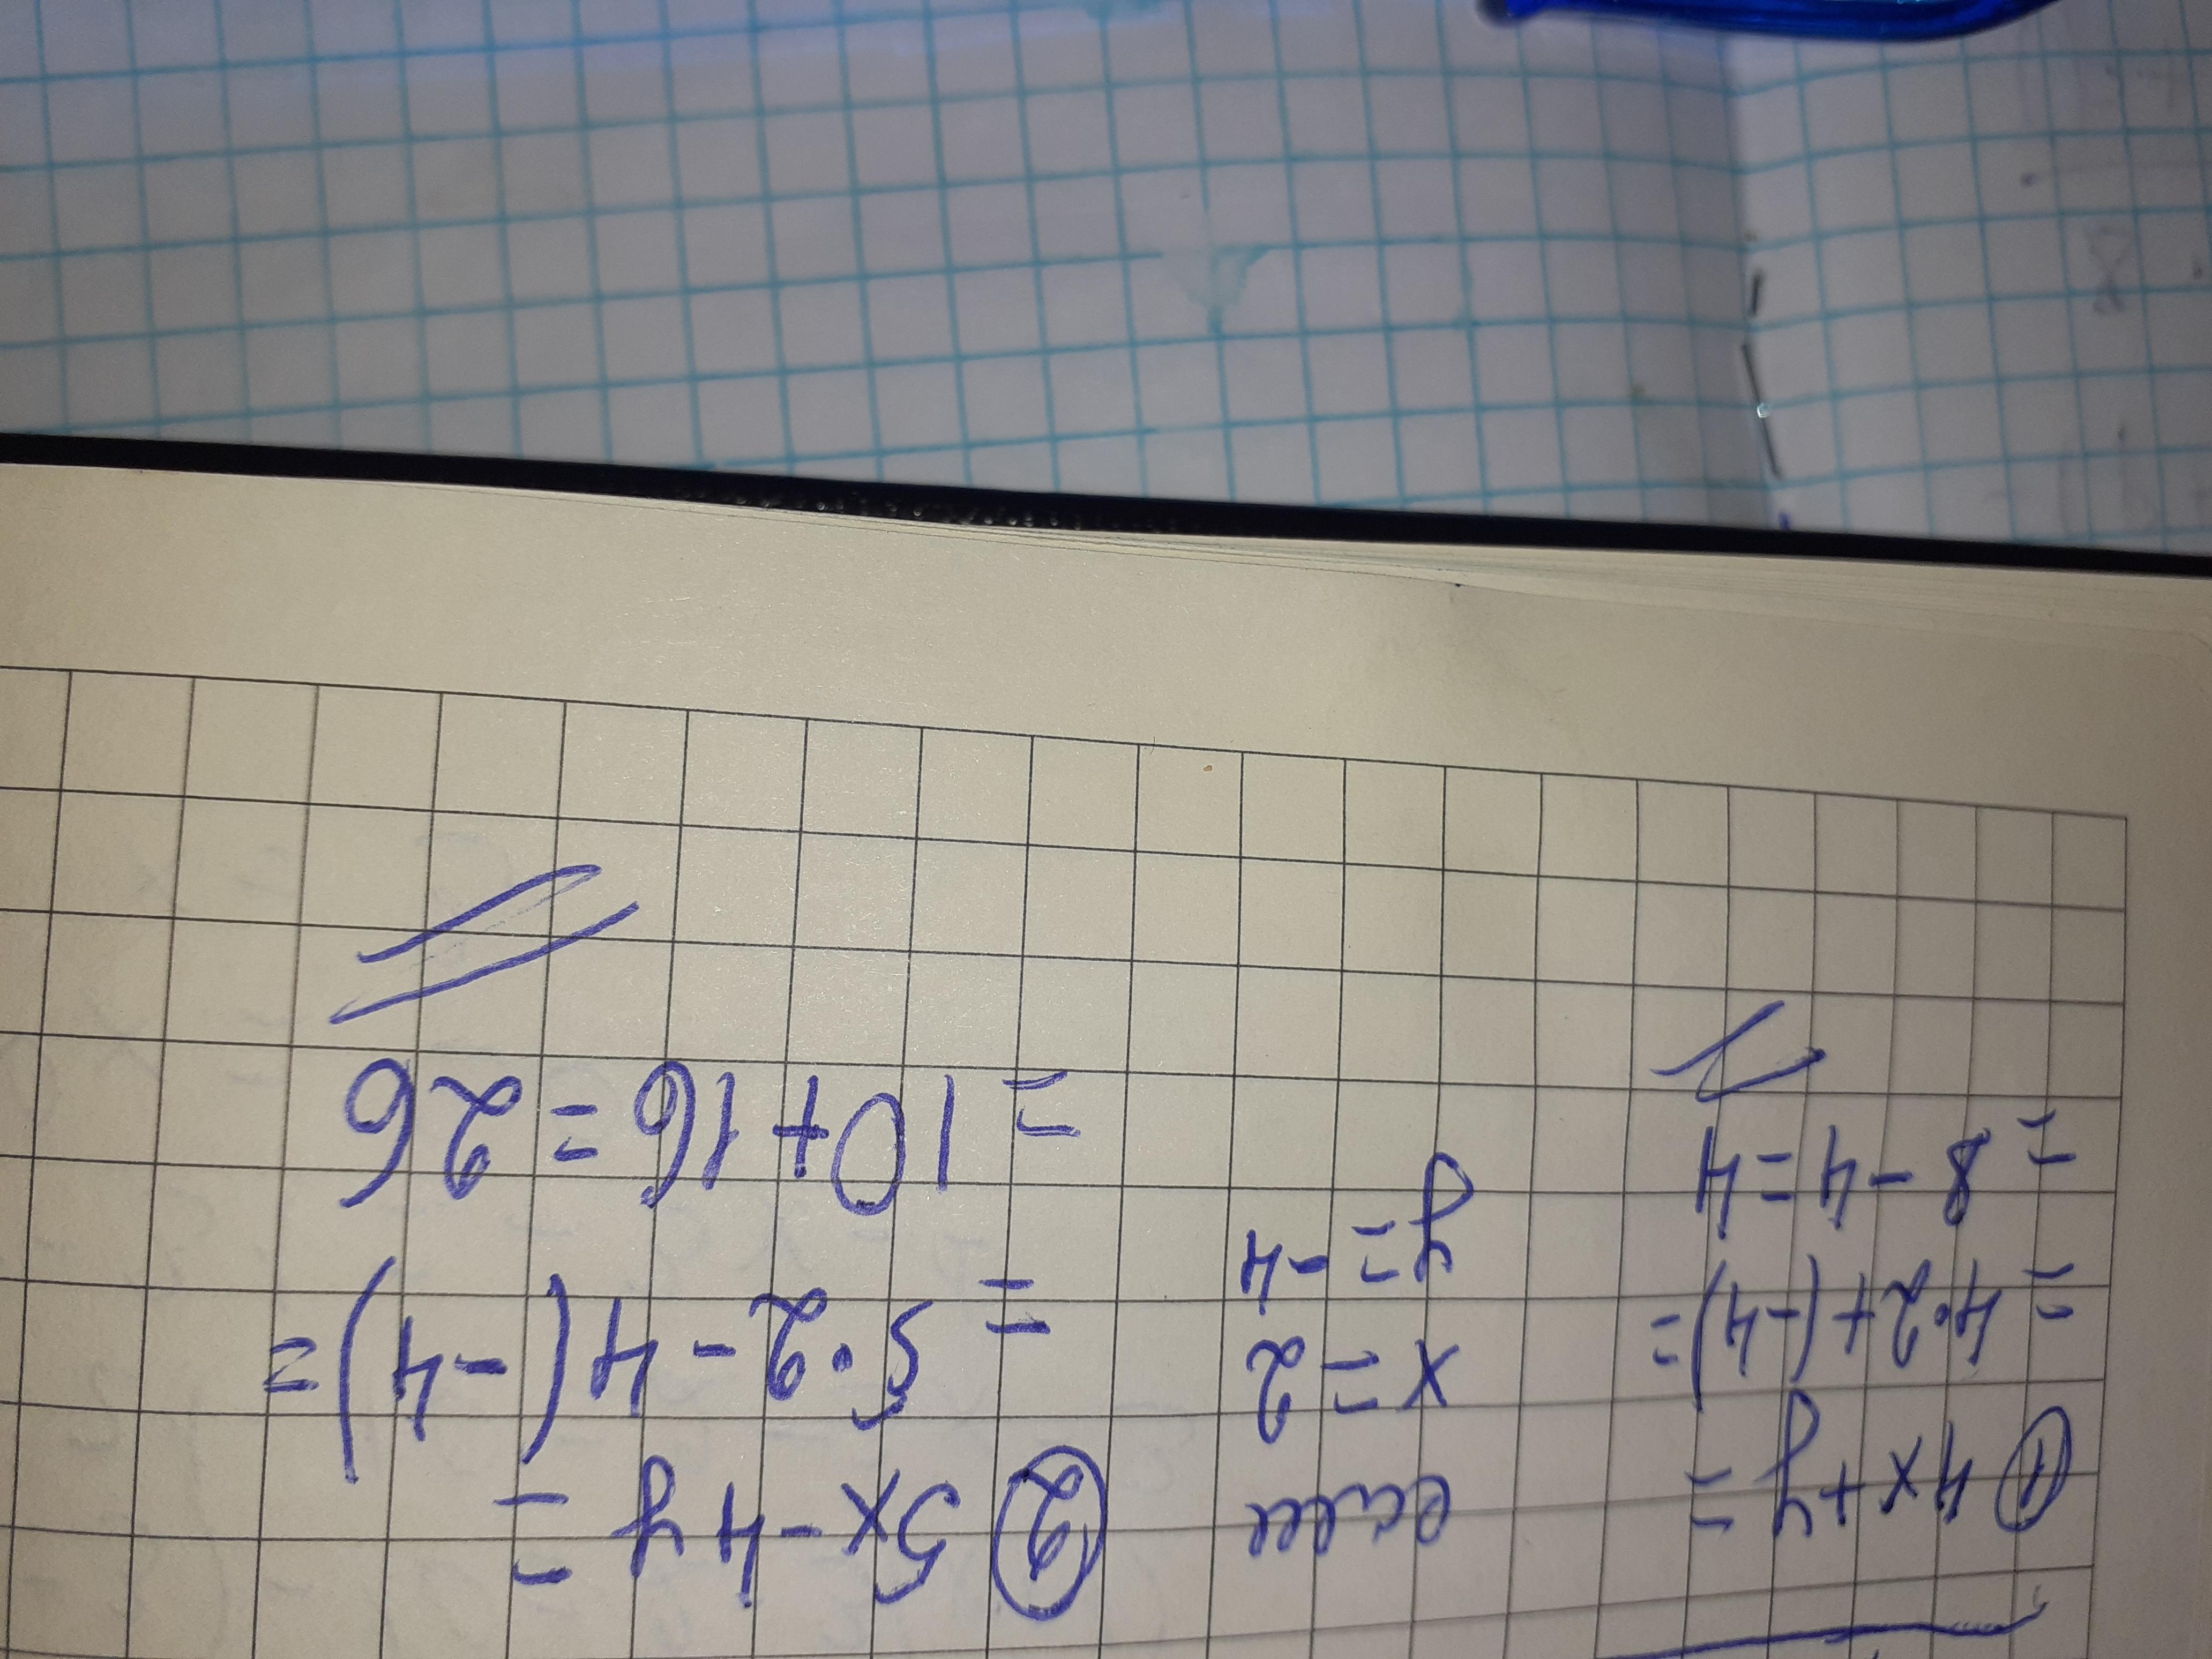 ① 4x+y=
= 4·2+(-4)=
= 8-4=4
если
x=2
y=-4
② 5x-4y=
= 5·2-4(-4)=
= 10+16=26